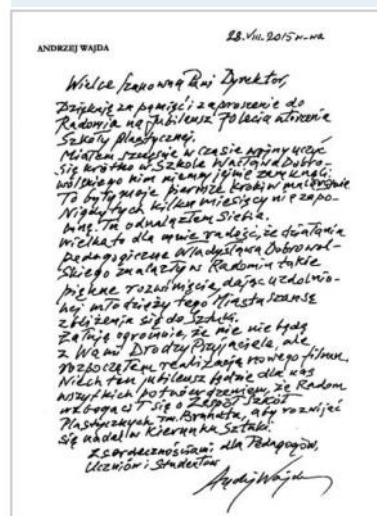 28.VIII.2015 W-wa
ANDRZEJ WAJDA
Wielce Szanowna Pani Dyrektor,
Dziękuję za pamięć i zaproszenie do
Radomia na Jubileusz 70 lecia utworzenia
Szkoły Plastycznej.
Miałem szczęście w czasie wojny uczyć
się krótko w Szkole Wacława Dobro-
wolskiego nim niemcy ją nie zamknęli.
To były moje pierwsze kroki w malarstwie
Nigdy tych kilku miesięcy nie zapo-
mnę. Tu odnalazłem Siebie.
Wielka to dla mnie radość, że działania
pedagogiczne Władysława Dobrowol-
skiego znalazły w Radomiu takie
piękne rozwinięcie, dając uzdolnio-
nej młodzieży tego Miasta szansę
zbliżenia się do Sztuki.
Żałuję ogromnie, że nie będę
z Wami Drodzy Przyjaciele, ale
rozpocząłem realizację nowego filmu.
Niech ten jubileusz będzie dla nas
wszystkich potwierdzeniem, że Radom
wzbogacił się o Zespół Szkół
Plastycznych im. Brandta, aby rozwijać
się nadal w kierunku Sztuki.
z serdecznościami dla Pedagogów,
Uczniów i Studentów
Andrzej Wajda